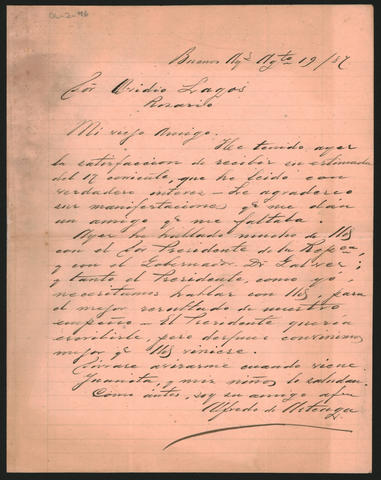 Buenos Ays Agto 19/87
Sor Ovidio Lagos
Rosario
Mi viejo Amigo.
He tenido ayer
la satisfaccion de recibir su estimada
del 17 corriente, que he leido con
verdadero interes – Le agradezco
sus manifestaciones qe me dan
un amigo qe me faltaba.
Ayer he hablado mucho de Ud
con el Sor Presidente de la Repca,
y con el Gobernador Dr Galvez;
y tanto el Presidente, como yo,
necesitamos hablar con Ud, para
el mejor resultado de nuestro
empeño – El Presidente queria
escribirle, pero despues convenimos
mejor qe Ud viniese.
Sirvase avisarme cuando viene.
Juanita, y mis niños lo saludan.
Como antes, soy su amigo afmo
Alfredo de Arteaga